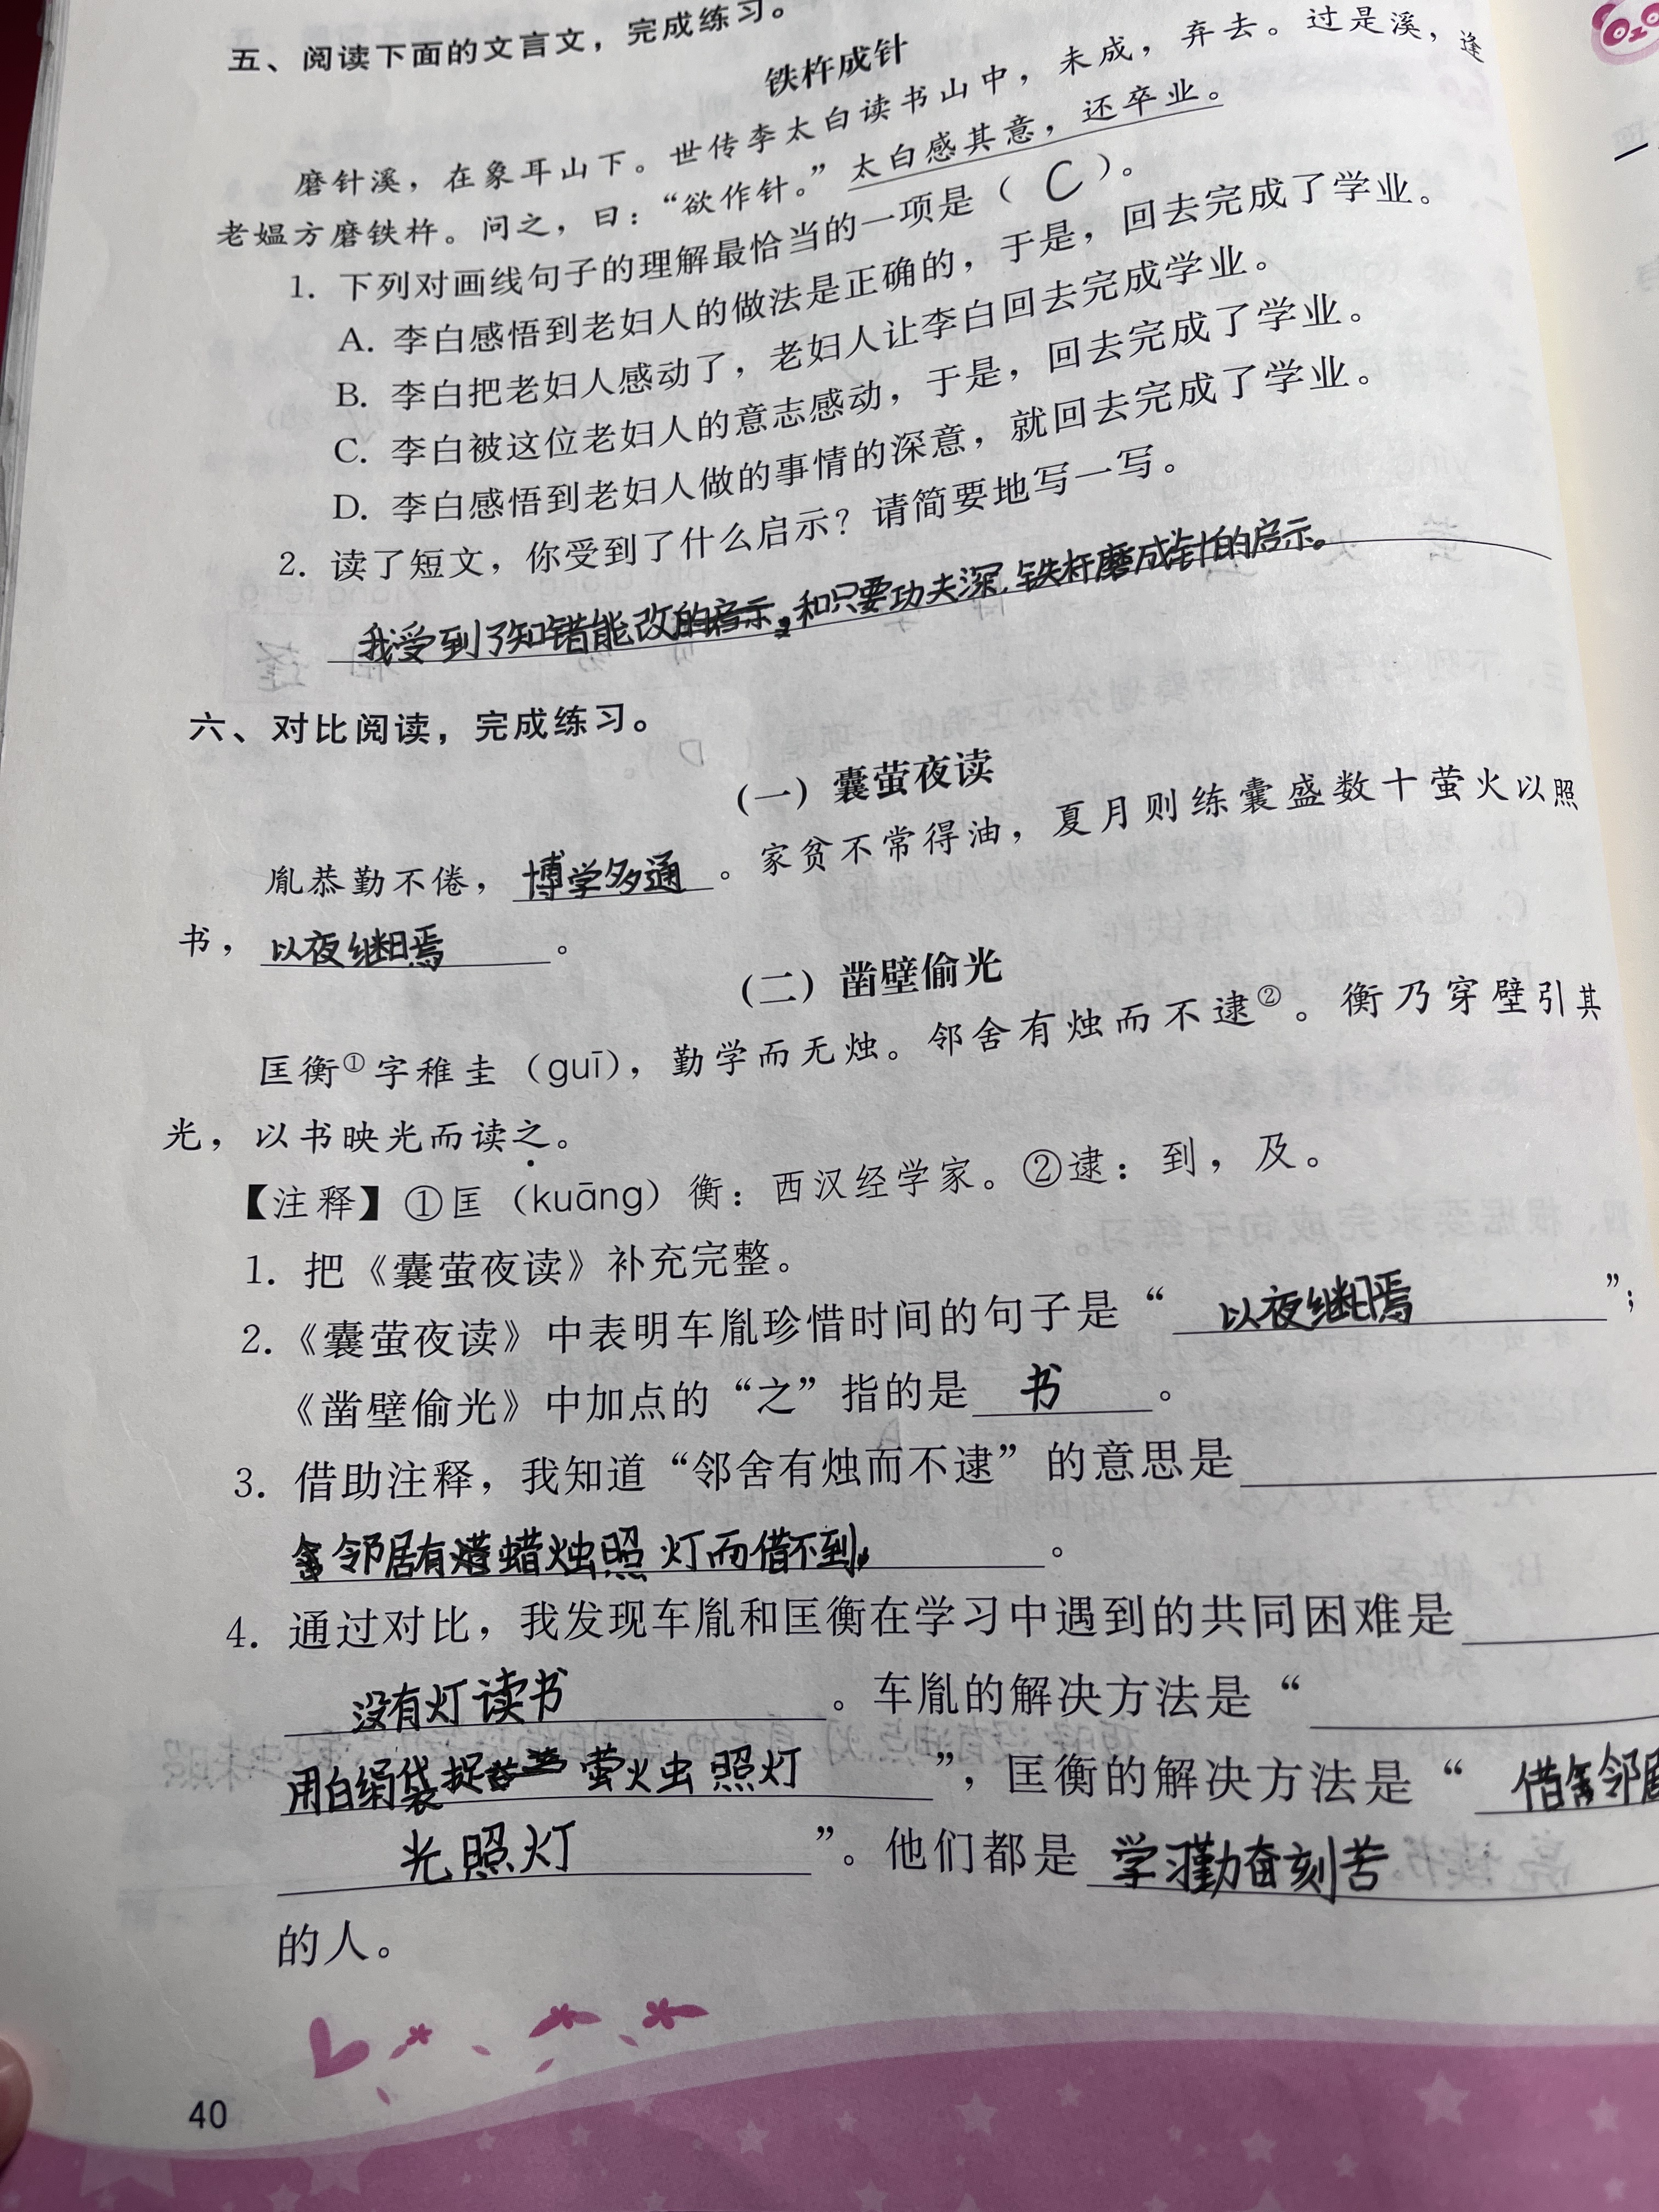 五、阅读下面的文言文，完成练习。
铁杵成针
磨针溪，在象耳山下。世传李太白读书山中，未成，弃去。过是溪，逢
老媪方磨铁杵。问之，曰：“欲作针。”太白感其意，还卒业。
1. 下列对画线句子的理解最恰当的一项是（ C ）。
A. 李白感悟到老妇人的做法是正确的，于是，回去完成了学业。
B. 李白把老妇人感动了，老妇人让李白回去完成学业。
C. 李白被这位老妇人的意志感动，于是，回去完成了学业。
D. 李白感悟到老妇人做的事情的深意，就回去完成了学业。
2. 读了短文，你受到了什么启示？请简要地写一写。
我受到了知错能改和只要功夫深，铁杵磨成针的启示。
六、对比阅读，完成练习。
（一）囊萤夜读
胤恭勤不倦，博学多通。家贫不常得油，夏月则练囊盛数十萤火以照
书，以夜继日焉。
（二）凿壁偷光
匡衡①字稚圭（guī），勤学而无烛。邻舍有烛而不逮②。衡乃穿壁引其
光，以书映光而读之。
【注释】①匡（kuāng）衡：西汉经学家。②逮：到，及。
1. 把《囊萤夜读》补充完整。
2.《囊萤夜读》中表明车胤珍惜时间的句子是“以夜继日焉”；
《凿壁偷光》中加点的“之”指的是 书。
3. 借助注释，我知道“邻舍有烛而不逮”的意思是
邻居有蜡烛照灯而借不到。。
4. 通过对比，我发现车胤和匡衡在学习中遇到的共同困难是
没有灯读书。车胤的解决方法是“
用白绢袋捉萤火虫照灯”，匡衡的解决方法是“借邻居
光照灯”。他们都是学习勤奋刻苦
的人。
40